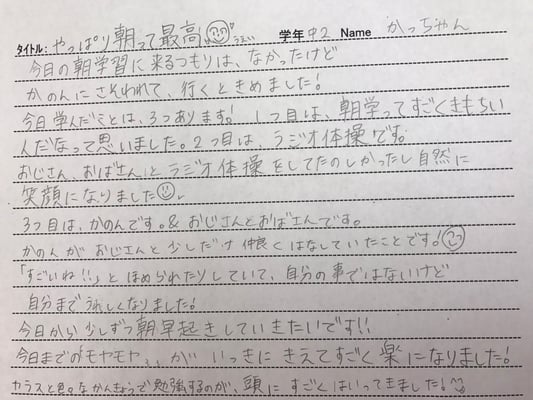 タイトル: やっぱり朝って最高 うぇい 学年 中2 Name かっちゃん
今日の朝学習に来るつもりは、なかったけど
かのんにさそわれて、行くときめました!
今日学んだことは、3つあります! 1つ目は、朝学ってすごくきもちい
んだなって思いました。2つ目は、ラジオ体操です。
おじさん、おばさんとラジオ体操をしてたのしかったし自然に
笑顔になりました
3つ目は、かのんです。&おじさんとおばさんです。
かのんがおじさんと少しだけ仲良くはなしていたことです!
「すごいね!!」とほめられたりしていて、自分の事ではないけど
自分までうれしくなりました!
今日から少しずつ朝早起きしていきたいです!!
今日までの"モヤモヤ、、がいっきにきえてすごく楽になりました!
カラスと色。なかんきょうで勉強するのが、頭にすごくはいってきました!